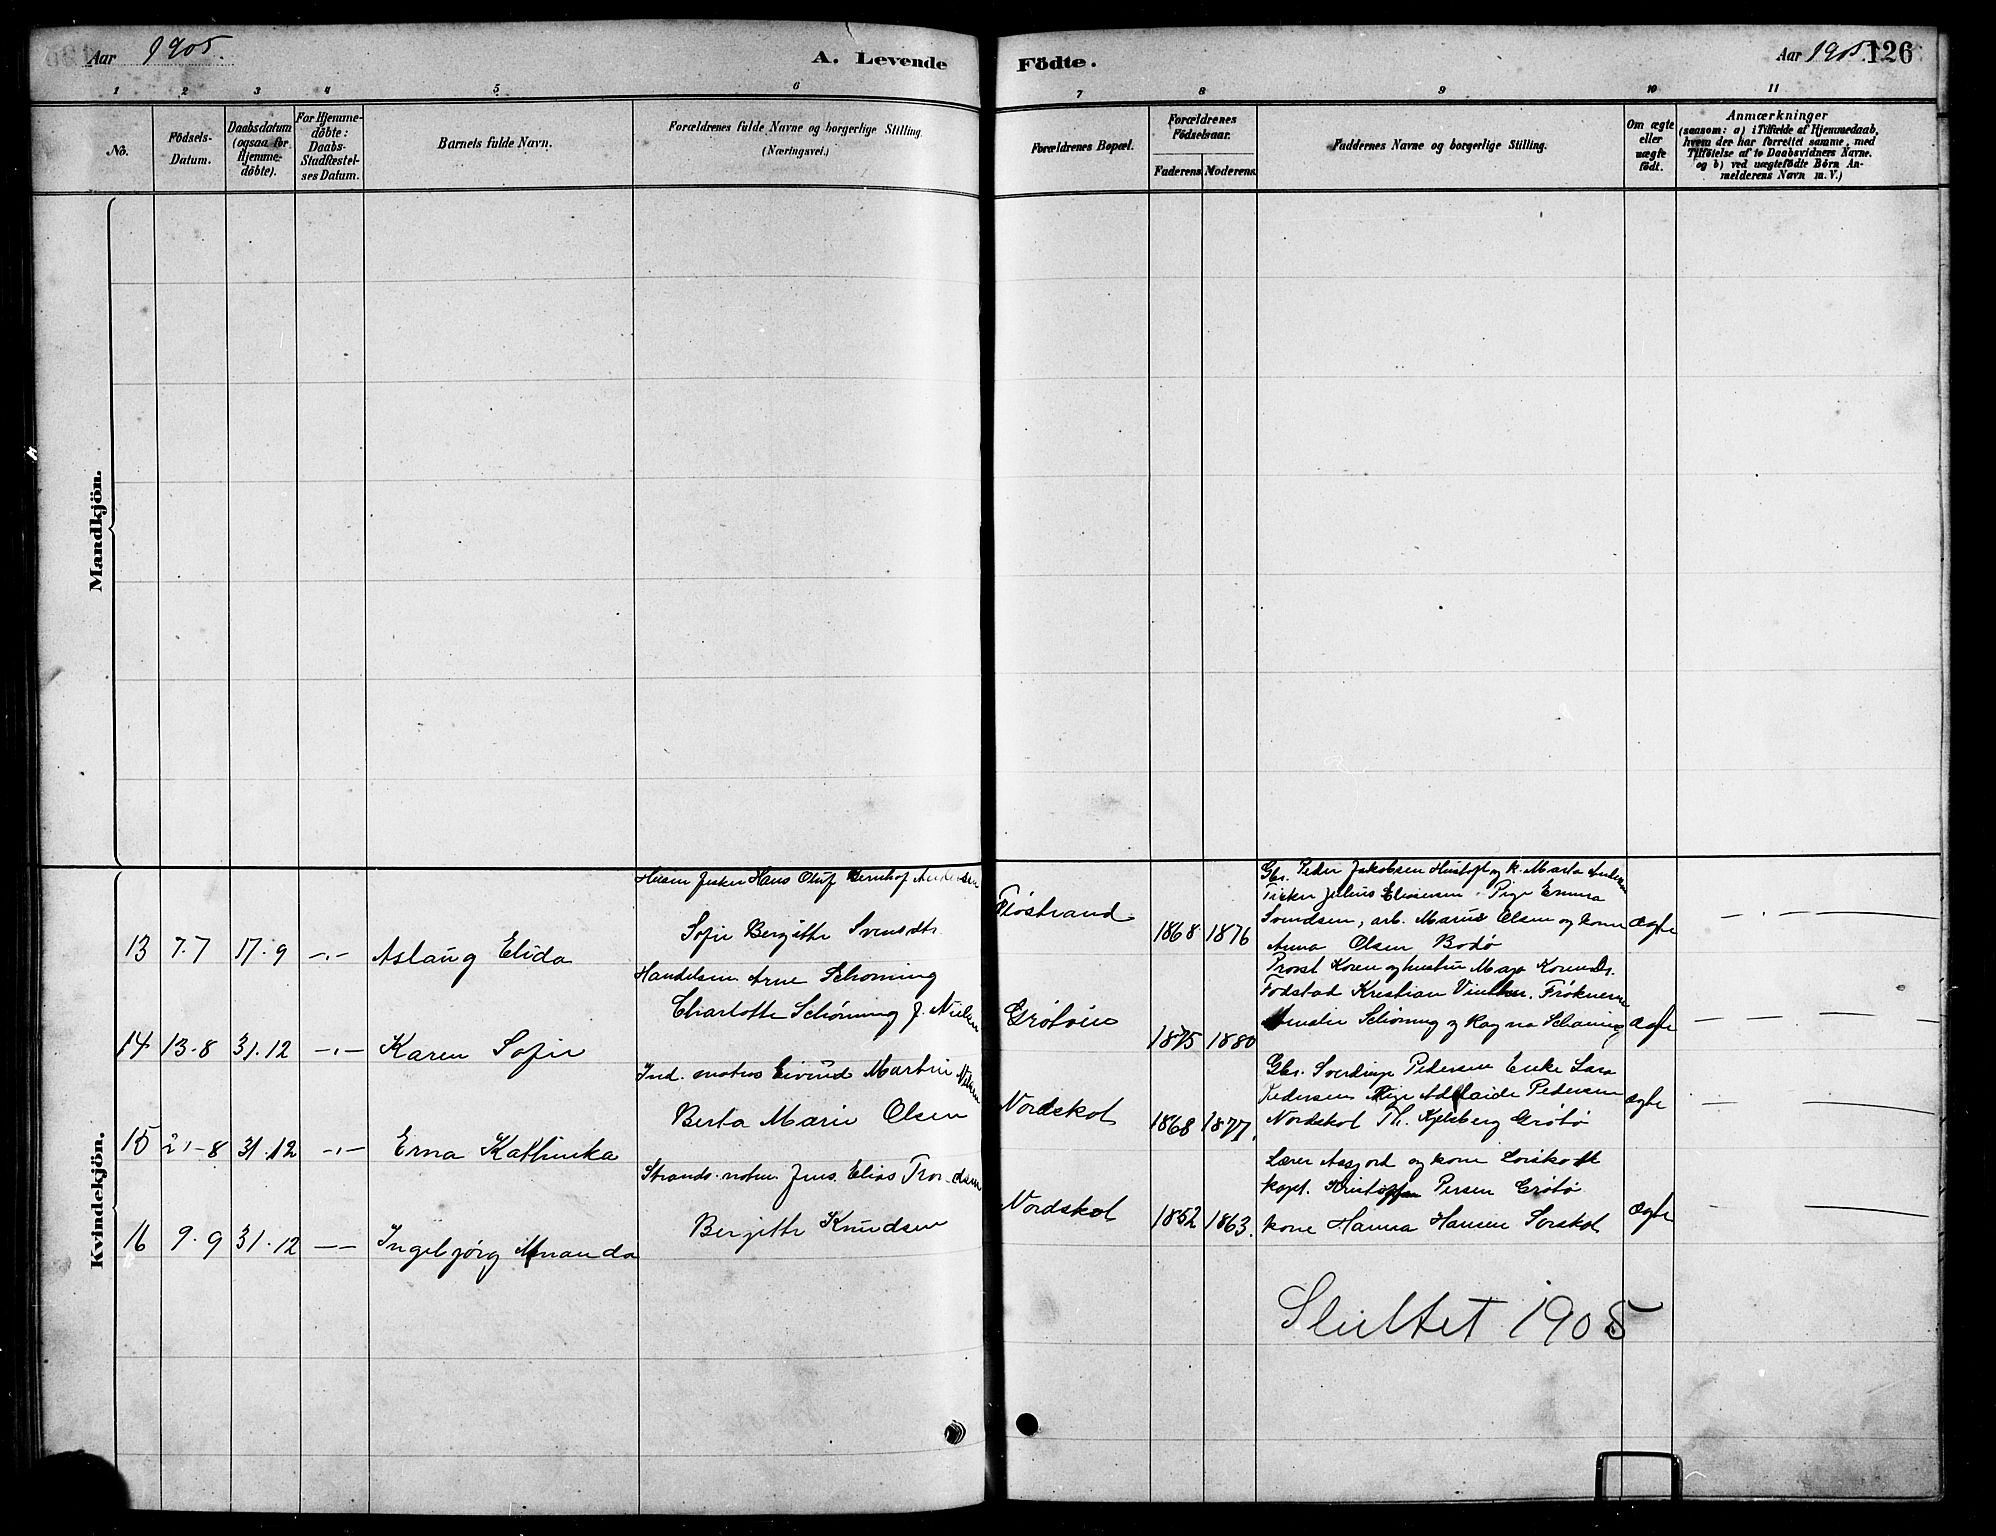 Aar 1905.
A. Levende
Födte.
Aar 1905. 126
1 2 3 4 5 6 7 8 9 10 11
No.
Födsels-
Datum.
Daabsdatum
(ogsaa for
Hjemme-
döbte).
For Hjemme-
döbte:
Daabs-
Stadfæstel-
ses Datum.
Barnets fulde Navn.
Forældrenes fulde Navne og borgerlige Stilling.
(Næringsvei.)
Forældrenes Bopæl.
Forældrenes
Födselsaar.
Faderens Moderens
Faddernes Navne og borgerlige Stilling.
Om ægte
eller
uægte
födt.
Anmærkninger
(saasom: a) i Tilfælde af Hjemmedaab,
hvem der har forrettet samme, med
Tilföielse af to Daabsvidners Navne.
og b) ved uægtefödte Börn An-
melderens Navn m. V.)
Mandkjön.
Kvindekjön.
13 7.7 17.9 -"- Aslaug Elida
Hans Oluf Bernhof Andersen
Sofie Bergithe Svendsdtr.
1868 1876
Gbr. Peder Jakobsen og k. Marta
Fisker Julius Eliasen Pige Emma
Svendsen, arb. Marius Olsen og kone
Anna Olsen Bodø
ægte
14 13-8 31.12 -"- Karen Sofie
Handelsm Arne Schøning
Charlotte Schøning f. Nielsen
Grøtøen
1875 1880
Provst Koren og hustru Koren
Kristian Frøknerne
Schøning og Ragna Schøning
ægte
15 21-8 31.12 -"- Erna Kathinka
Ind. Eivind Martin
Berta Marie Olsen
Nordskot
1868 1877.
Gbr. Sverdrup Pedersen Enke Lara
Pedersen Pige Adelaide Pedersen
Nordskot Th. Kjelsberg Grøtø
ægte
16 9.9 31.12 -- Ingebjørg Amanda
Jens Elias
Bergithe Knudsen
Nordskot
1852 1863.
Lærer og kone
Kristoffer Persen Grøtø
kone Hanna Hansen Sørskot
ægte
Sluttet 1905